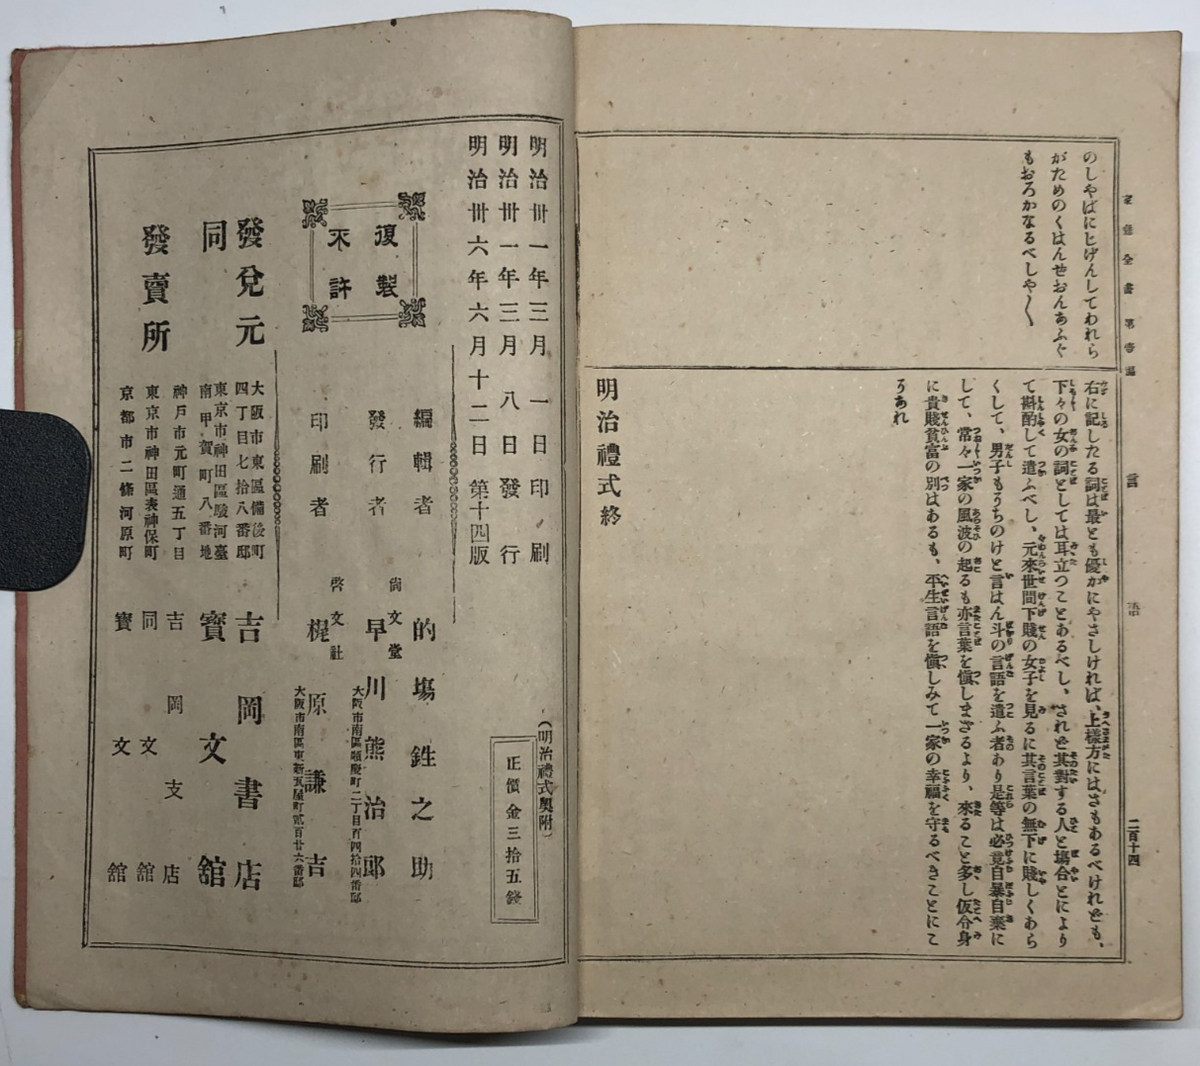 家庭全書第壹編
言語
二百十四
のしやばにとげんしてわれら
がためのくはんせおんあふぐ
もおろかなるべしや〱
右に記したる詞は最とも優かにやさしければ、上樣方にはさもあるべけれども、
下々の女の詞としては耳立つことあるべし、されど其對する人と塲合とにより
て斟酌して遣ふべし、元來世間下賤の女子を見るに其言葉の無下に賤しくあら
くして、男子もうちのけと言はん斗の言語を遣ふ者あり是等は必竟自暴自棄に
して、常々一家の風波の起るも亦言葉を愼しまざるより、來ること多し仮令身
に貴賤貧富の別はあるも、平生言語を愼しみて一家の幸福を守るべきことにこ
うあれ
明治禮式終
明治卅一年三月一日印刷
明治卅一年三月八日發行
明治卅六年六月十二日第十四版
(明治禮式奧附)
正價金三拾五錢
復製
不許
編輯者 的塲鉎之助
發行者 尙文堂 早川熊治郎
大阪市南區順慶町二丁目百四拾四番邸
印刷者 啓文社 梶原謙吉
大阪市南區東新瓦屋町貳百廿六番邸
發兌元 大阪市東區備後町四丁目七拾八番邸 吉岡書店
同 東京市神田區駿河臺南甲賀町八番地 寶文舘
發賣所 神戸市元町通五丁目 吉岡支店
東京市神田區表神保町 同文舘
京都市二條河原町 寶文舘